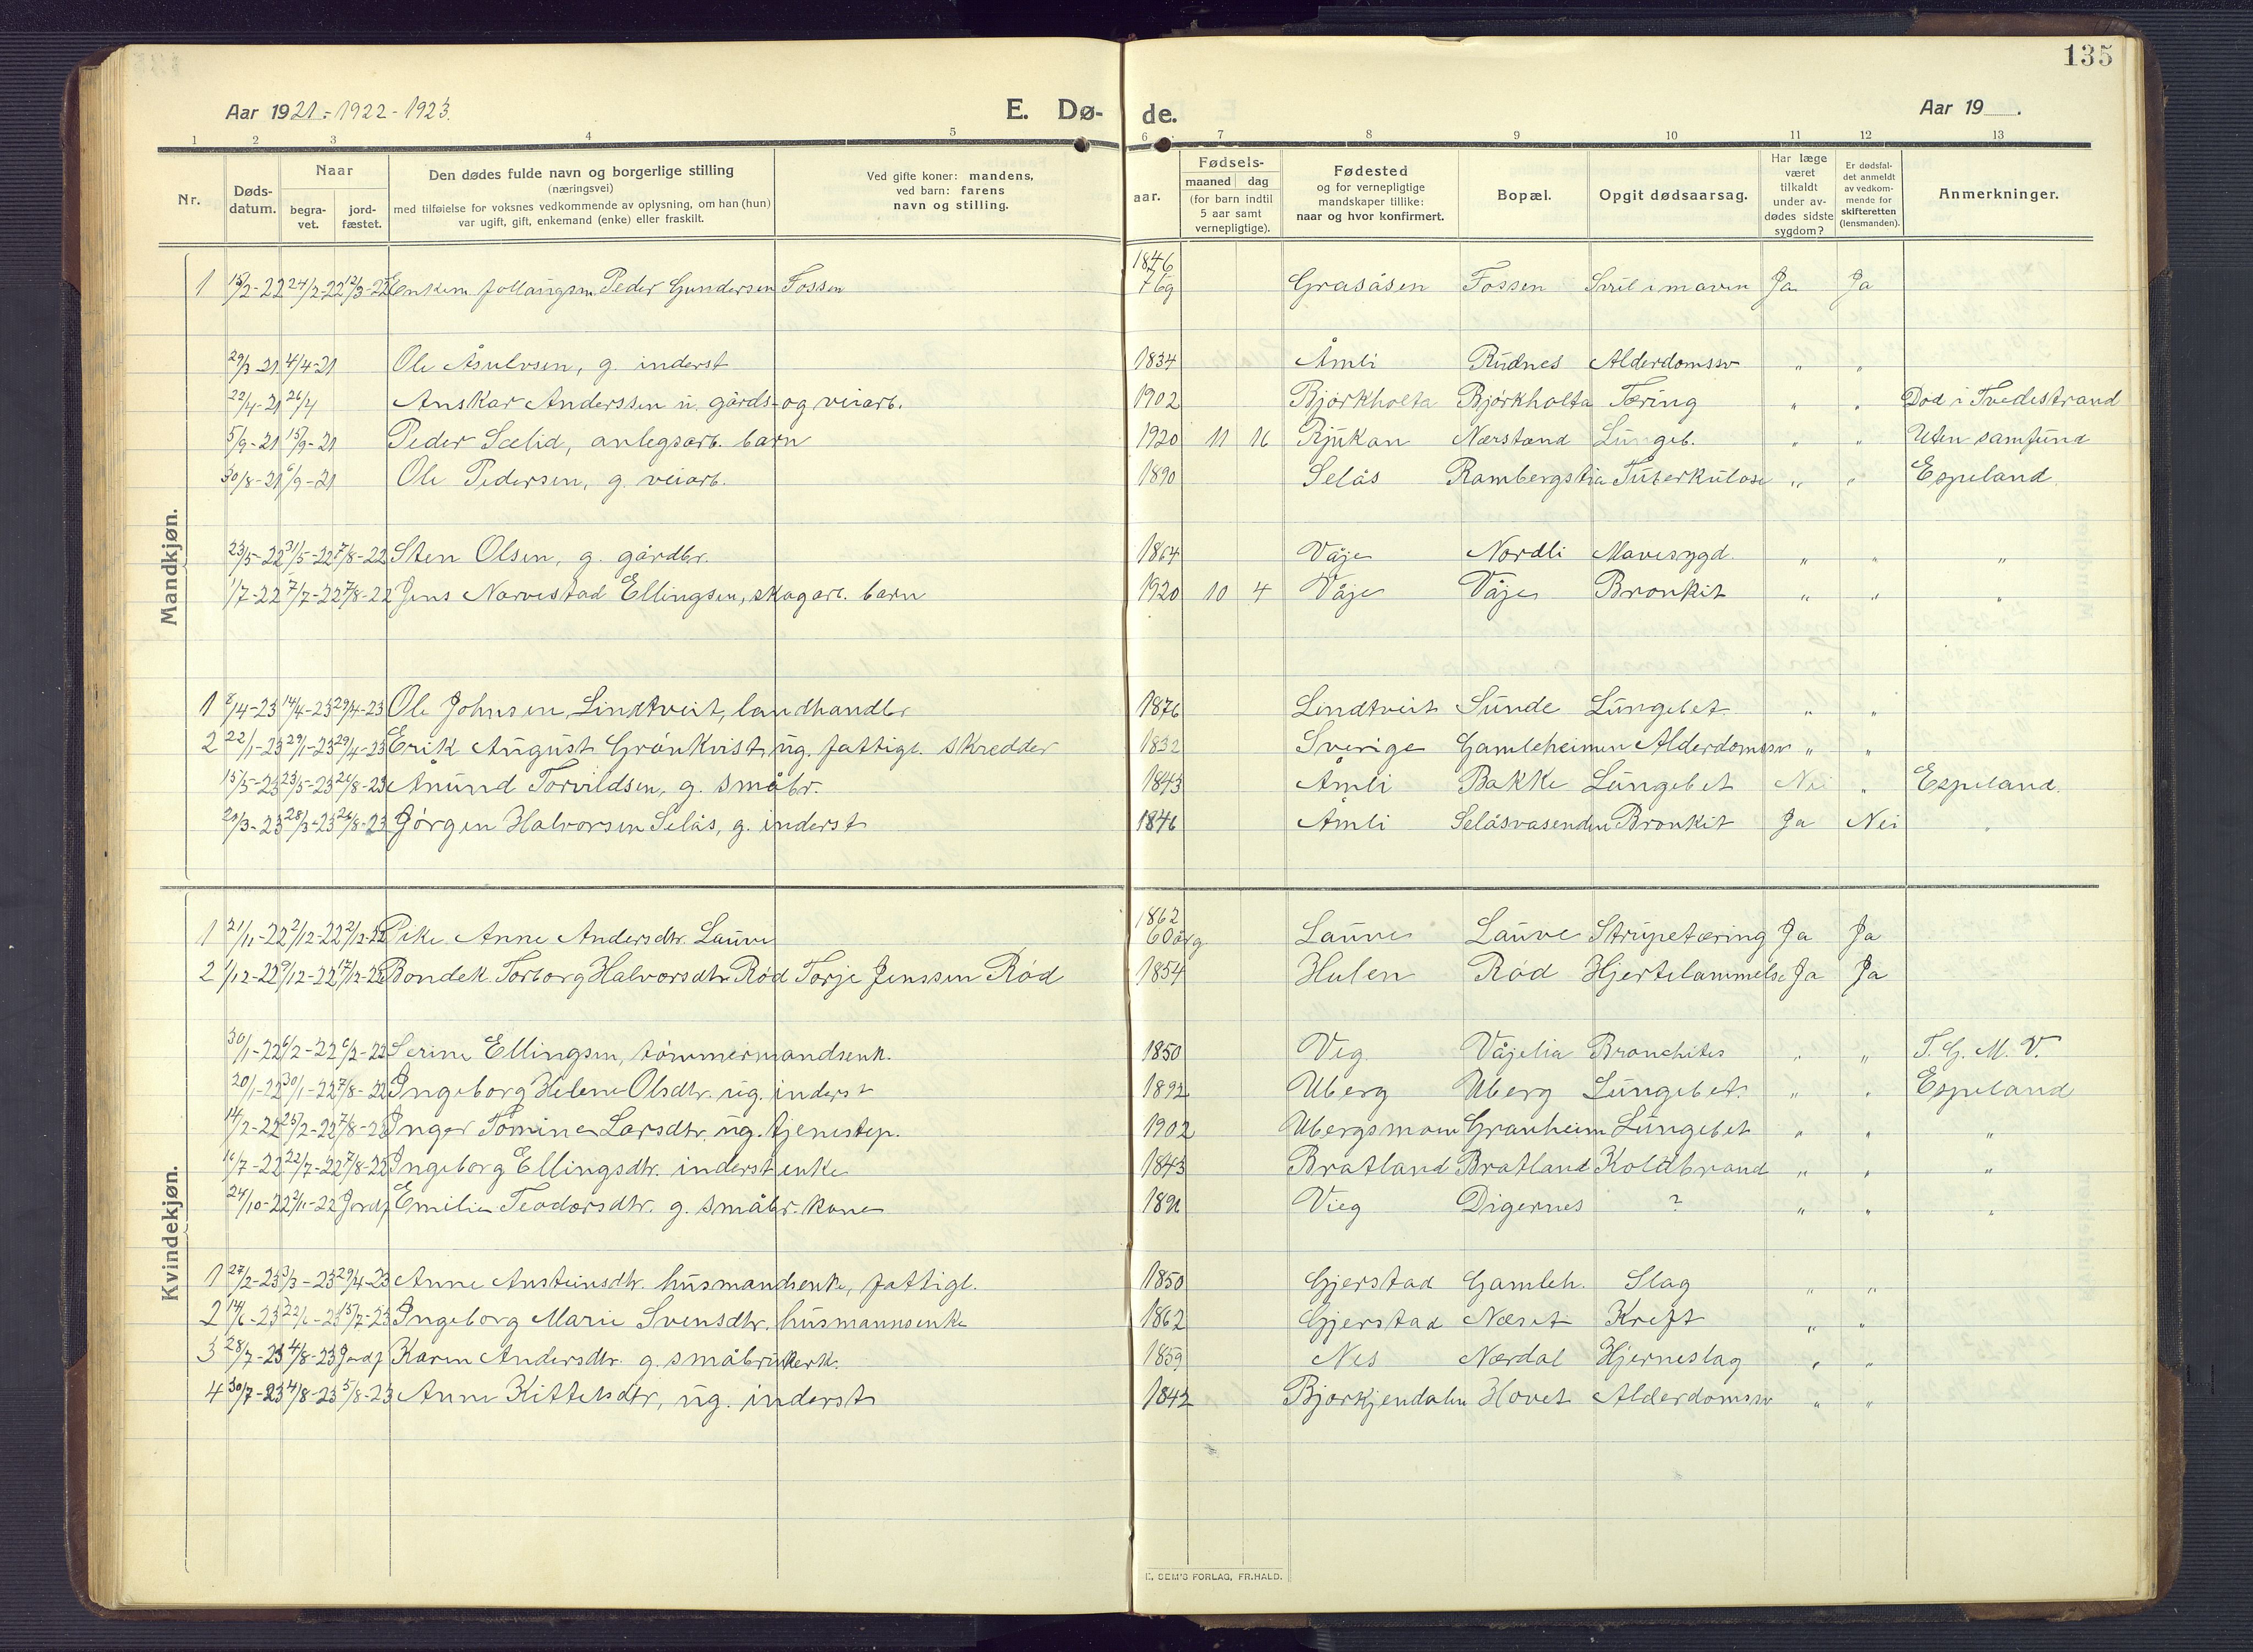 135
Aar 1921 - 1922 - 1923.
E. Dø-
de.
Aar 19 .
1 2 3 4 5 6 7 8 9 10 11 12 13
Nr.
Døds-
datum.
Naar
begra-
vet.
jord-
fæstet.
Den dødes fulde navn og borgerlige stilling
(næringsvei)
med tilføielse for voksnes vedkommende av oplysning, om han (hun)
var ugift, gift, enkemand (enke) eller fraskilt.
Ved gifte koner: mandens,
ved barn: farens
navn og stilling.
aar.
Fødsels-
maaned dag
(for barn indtil
5 aar samt
vernepligtige).
Fødested
og for vernepligtige
mandskaper tillike:
naar og hvor konfirmert.
Bopæl.
Opgit dødsaarsag.
Har læge
været
tilkaldt
under av-
dødes sidste
sygdom?
Er dødsfal-
det anmeldt
av vedkom-
mende for
skifteretten
(lensmanden).
Anmerkninger.
Mandkjøn.
1846
1 15/2-22 24/2-22 12/3-22 Enkem. Peder Gundersen Fossen Grasåsen Fossen Ja Ja
29/3-21 4/4-21 Ole Åsulvsen, g. inderst 1834 Åmli Rudnes Alderdomssv " "
22/4-21 26/4 Anskar Anderssen u. gårds- og veiarb. 1902 Bjørkholta Bjørkholta Tæring " " Død i Tvedestrand
5/9-21 15/9-21 Peder Sælid, anlegsarb. barn 1920 11 16 Rjukan Nærstand Lungeb. " " Uten samfund
30/8-21 6/9-21 Ole Pedersen, g. veiarb. 1890 Selås Rambergstia Tuberkulose " " Espeland
23/5-22 31/5-22 7/8-22 Sten Olsen, g. gårdbr. 1864 Våje Nordli Mavesygd. " " "
1/7-22 7/7-22 7/8-22 Jens Narvestad Ellingsen, skogarb. barn 1920 10 4 Våje Våje Bronkit " " "
1 8/4-23 14/4-23 29/4-23 Ole Johnsen Lindtveit, landhandler 1876 Lindtveit Sunde Lungebet. " "
2 22/1-23 29/1-23 29/4-23 Erik August Grönkvist, ug. fattigl. skredder 1832 Sverige Gamleheimen Alderdomssv " "
15/5-23 23/5-23 26/8-23 Anund Torvildsen, g. småbr. 1843 Åmli Bakke Lungebet Nei " Espeland.
20/3-23 28/3-23 26/8-23 Jørgen Halvorsen Selås, g. inderst 1846 Åmli Selåsvasenden Bronkit Ja Nei "
Kvindekjøn.
1862
1 21/11-22 2/12-22 2/12-22 Pike Anne Andersdtr. Lauve 60 årg Lauve Lauve Strupetæring Ja Ja
2 1/12-22 9/12-22 17/12-22 Bondek. Torborg Halvorsdtr. Rød Torje Jenssen Rød 1854 Hulen Rød Hjertelammelse Ja Ja
30/1-22 6/2-22 6/2-22 Serine Ellingsen, tømmermandsenk. 1850 Veg Våjelia Bronchites " " T. G. M. V.
20/1-22 30/1-22 7/8-22 Ingeborg Helene Olsdtr. ug. inderst 1892 Uberg Uberg Lungebet. " " Espeland
14/2-22 25/2-22 7/8-22 Inger Tomine Larsdtr. ug. tjenestep. 1902 Ubergsmoen Granheim Lungebet " " "
16/7-22 22/7-22 7/8-22 Ingeborg Ellingsdtr. inderst enke 1843 Bratland Bratland Koldbrand " " "
24/10-22 2/11-22 Jordf Emilie Teodorsdtr. g. småbr. kone Vieg Digernes ? " " "
1 27/2-23 3/3-23 29/4-23 Anne Austeinsdtr. husmandsenke, fattigl. 1850 Gjerstad Gamleh. Slag " "
2 14/6-23 22/6-23 15/7-23 Ingeborg Marie Svensdtr. husmannsenke 1862 Gjerstad Næset Kreft " "
3 28/7-23 4/8-23 Jordf Karen Andersdtr. g. småbrukerk. 1859 Nes Nærdal Hjerneslag " "
4 30/7-23 4/8-23 5/8-23 Anne Kittelsdtr, ug. inderst 1842 Bjorkjendalen Hovet Alderdomssv " "
E. SEM'S FORLAG, FR.HALD.